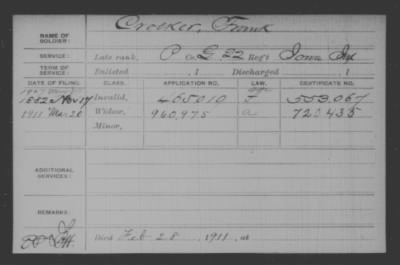 NAME OF SOLDIER: Crocker, Frank
SERVICE: Late rank, P Co. E, 22 Reg't Iowa Inf
TERM OF SERVICE: Enlisted , 1 Discharged , 1
DATE OF FILING. CLASS. APPLICATION NO. LAW. CERTIFICATE NO.
1882 Nov 17 Invalid, 465010 559.067
1911 Mar 20 Widow, 960,975 a 720,435
Minor,
ADDITIONAL SERVICES:
REMARKS:
Died Feb 28, 1911, at